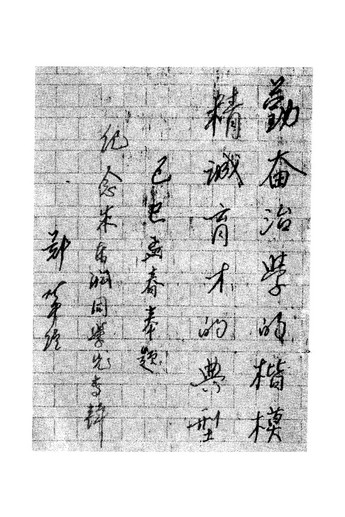 勤奋治学的楷模
精诚育才的典型
己巳孟春奉题
纪念朱东润同学先专辑
郑